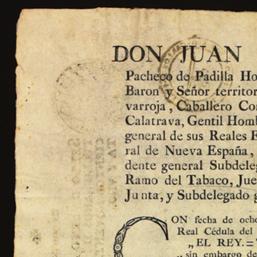 DON JUAN
Pacheco de Padilla Ho
Baron y Señor territor
varroja, Caballero Co
Calatrava, Gentil Homb
general de sus Reales E
ral de Nueva España,
dente general Subdeleg
Ramo del Tabaco, Jue
Junta, y Subdelegado g
CON fecha de ocho
Real Cédula del
„ EL REY. =
„ sin embargo de